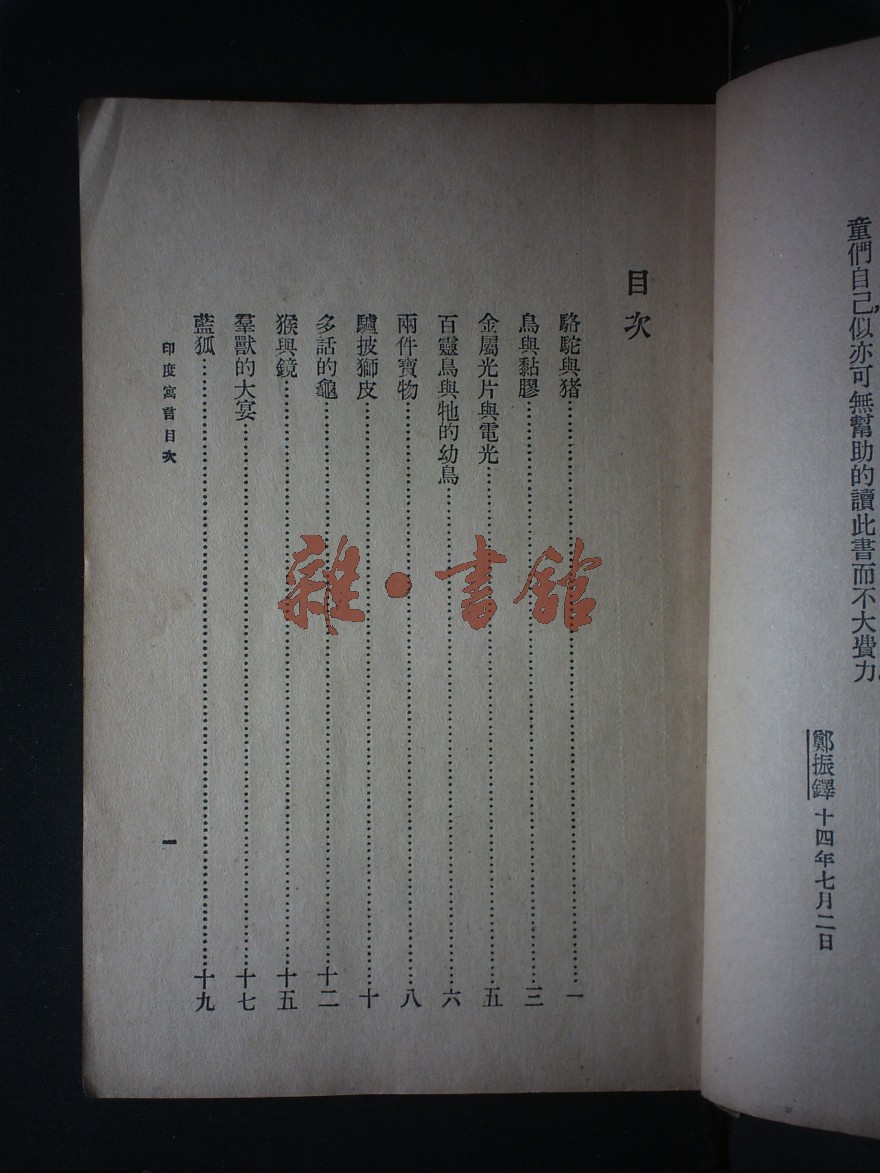 童們自己似亦可無幫助的讀此書而不大費力。
鄭振鐸 十四年七月二日
目次
駱駝與猪……一
鳥與黏膠……三
金屬光片與電光……五
百靈鳥與牠的幼鳥……六
兩件寶物……八
驢披獅皮……十
多話的龜……十二
猴與鏡……十五
羣獸的大宴……十七
藍狐……十九
印度寓言目次
一
雜·書館